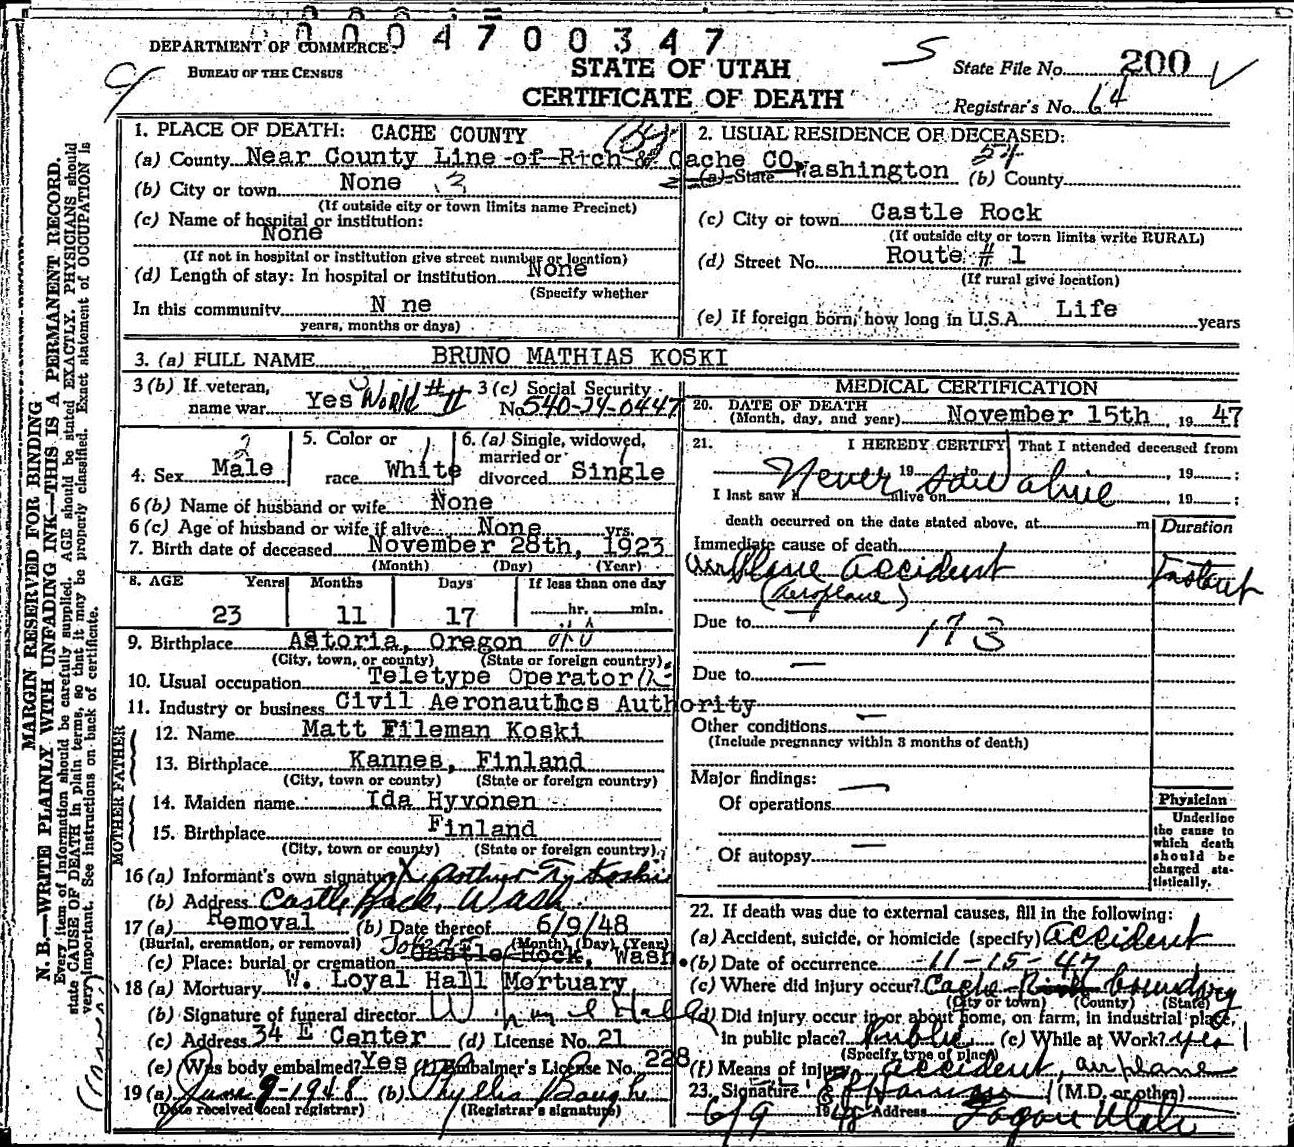 00047 00347
DEPARTMENT OF COMMERCE
BUREAU OF THE CENSUS
STATE OF UTAH
CERTIFICATE OF DEATH
S
State File No. 200
Registrar's No. 64
MARGIN RESERVED FOR BINDING
N. B.—WRITE PLAINLY WITH UNFADING INK—THIS IS A PERMANENT RECORD.
Every item of information should be carefully supplied. AGE should be stated EXACTLY. PHYSICIANS should
state CAUSE OF DEATH in plain terms, so that it may be properly classified. Exact statement of OCCUPATION is
very important. See instructions on back of certificate.
1. PLACE OF DEATH: CACHE COUNTY
(a) County Near County Line of Rich & Cache CO.
(b) City or town None
(If outside city or town limits name Precinct)
(c) Name of hospital or institution:
None
(If not in hospital or institution give street number or location)
(d) Length of stay: In hospital or institution None
(Specify whether
In this community N ne
years, months or days)
2. USUAL RESIDENCE OF DECEASED:
54
(a) State Washington (b) County
(c) City or town Castle Rock
(If outside city or town limits write RURAL)
(d) Street No. Route # 1
(If rural give location)
(e) If foreign born, how long in U.S.A. Life years
3. (a) FULL NAME BRUNO MATHIAS KOSKI
3 (b) If veteran, name war Yes World # II
3 (c) Social Security No. 540-24-0447
4. Sex Male
5. Color or race White
6. (a) Single, widowed, married or divorced Single
6 (b) Name of husband or wife None
6 (c) Age of husband or wife if alive None yrs.
7. Birth date of deceased November 28th, 1923
(Month) (Day) (Year)
8. AGE Years Months Days If less than one day
23 11 17 hr. min.
9. Birthplace Astoria, Oregon
(City, town, or county) (State or foreign country)
10. Usual occupation Teletype Operator
11. Industry or business Civil Aeronautics Authority
FATHER
12. Name Matt Fileman Koski
13. Birthplace Kannes, Finland
(City, town or county) (State or foreign country)
MOTHER
14. Maiden name Ida Hyvonen
15. Birthplace Finland
(City, town or county) (State or foreign country)
16 (a) Informant's own signature X Koski
(b) Address Castle Rock, Wash
17 (a) Removal (b) Date thereof 6/9/48
(Burial, cremation, or removal) (Month) (Day) (Year)
(c) Place: burial or cremation Castle Rock, Wash
18 (a) Mortuary W. Loyal Hall Mortuary
(b) Signature of funeral director W. Loyal Hall
(c) Address 34 E Center (d) License No. 21
(e) Was body embalmed? Yes (f) Embalmer's License No. 228
19 (a) June 9-1948 (b) Phyllis Baugh
(Date received local registrar) (Registrar's signature)
MEDICAL CERTIFICATION
20. DATE OF DEATH
(Month, day, and year) November 15th, 1947
21. I HEREBY CERTIFY, That I attended deceased from
19 to , 19 ;
Never saw alive
I last saw h alive on , 19 ;
death occurred on the date stated above, at m
Duration
Immediate cause of death
Airplane accident
(Aeroplane)
Instant
Due to 173
Due to —
Other conditions —
(Include pregnancy within 3 months of death)
Major findings:
Of operations —
Of autopsy —
Physician
Underline
the cause to
which death
should be
charged sta-
tistically.
22. If death was due to external causes, fill in the following:
(a) Accident, suicide, or homicide (specify) accident
(b) Date of occurrence 11-15-47
(c) Where did injury occur? Cache Rich boundry
(City or town) (County) (State)
(d) Did injury occur in or about home, on farm, in industrial place,
in public place? Public (e) While at Work? yes
(Specify type of place)
(f) Means of injury accident, airplane
23. Signature (M.D. or other)
6/9 1948 Address Logan Utah